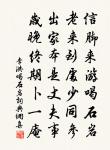 信腳來游喝石岩
老來到處少同參
出家是丈夫事
歲晚終期卜一庵
李洪喝石岩詞典網集